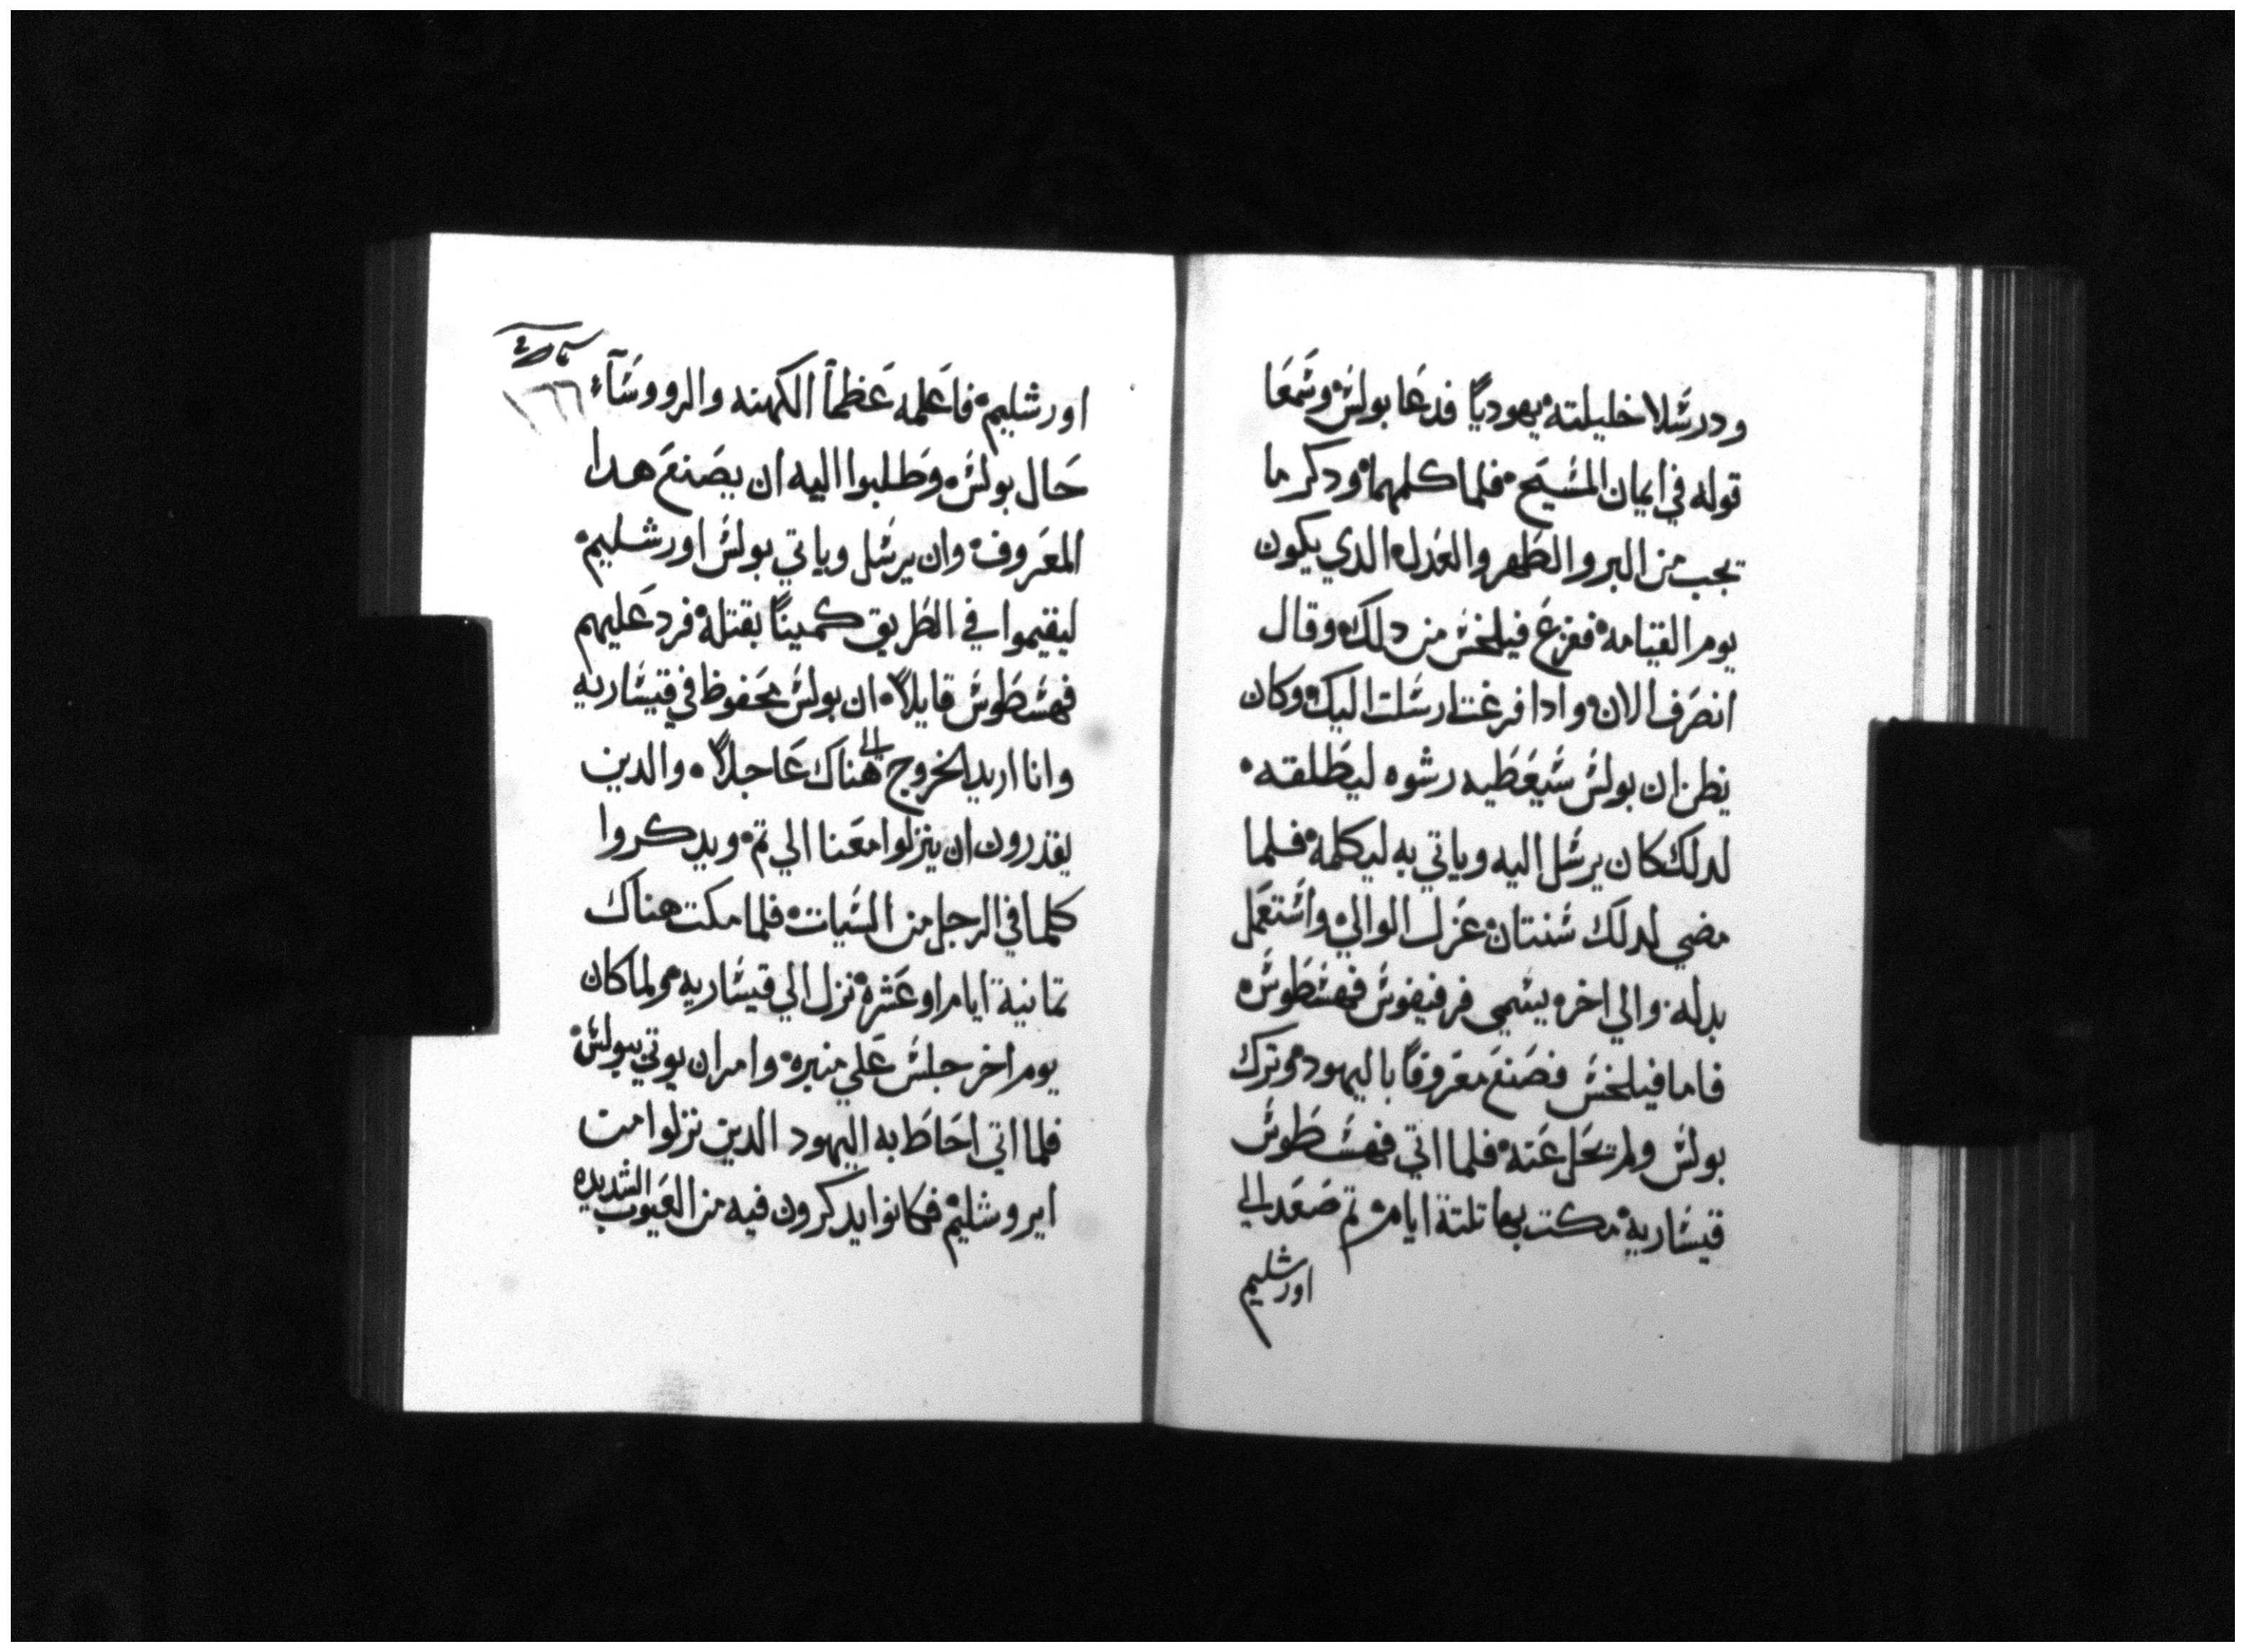 ودرسلا خليلته يهوديًا فدعا بولس وسمعا
قوله في ايمان المسيح فلما كلمهما ودكر ما
يجب من البر والطهر والعدل الدي يكون
يوم القيامه ففزع فيلخس من دلك وقال
انصرف الان وادا فرغت ارسلت اليك وكان
يظن ان بولس سيعطيه رشوه ليطلقه
لدلك كان يرسل اليه وياتي به ليكلمه فلما
مضي لدلك سنتان عزل الوالي واستعمل
بدله والي اخر يسمي فرفيفوس فهسطوس
فاما فيلخس فصنع معروفًا باليهود وترك
بولس ولم يحل عنه فلما اتي فهسطوس
قيساريه مكت بها تلتة ايام تم صعد الي
اورشليم
١٦٦
اورشليم فاعلمه عظمآ الكهنه والرووسآء
حال بولس وطلبوا اليه ان يصنع هدا
المعروف وان يرسل وياتي بولس اورشليم
ليقيموا في الطريق كمينًا بقتله فرد عليهم
فهسطوس قايلاً ان بولس محفوظ في قيساريه
وانا اريد الخروج الي هناك عاجلاً والدين
يقدرون ان ينزلوا معنا الي تم ويدكروا
كلما في الرجل من السيات فلما مكت هناك
تمانية ايام او عشره نزل الي قيساريه ولما كان
يوم اخر جلس علي منبره وامر ان يوتي ببولس
فلما اتي احاط به اليهود الدين نزلوا من
ايروشليم فكانوا يدكرون فيه من العيوب الشديده